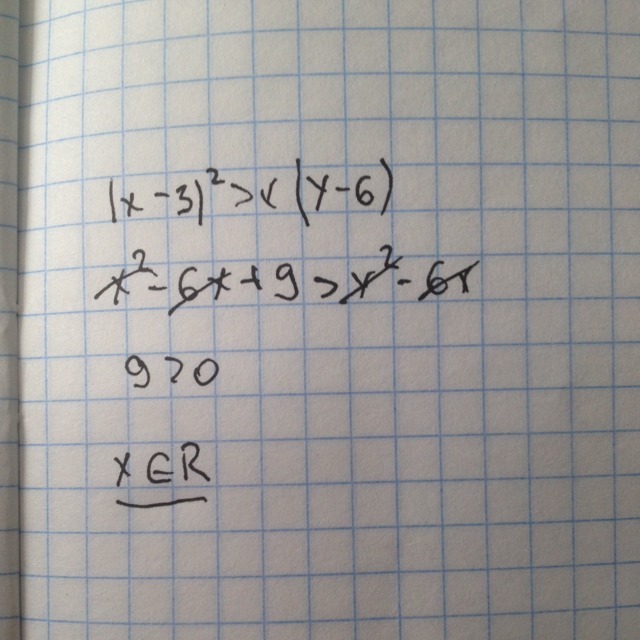 (x - 3)² > x(x - 6)
x² - 6x + 9 > x² - 6x
9 > 0
x ∈ R